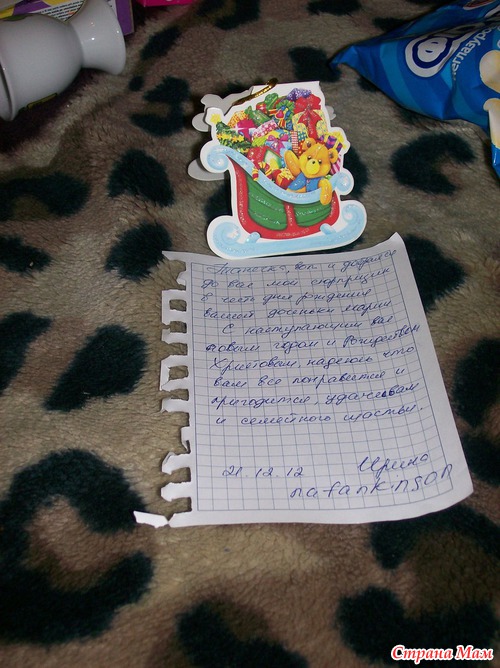 Танечка, вот и добрались
до вас мои сюрпризики
в честь дня рождения
вашей доченьки Марии
С наступающим вас
новым годом и Рождеством
Христовым, надеюсь что
вам все понравится и
пригодится. Удачи вам
и семейного счастья.
21.12.12 Ирина
nafankinson
глазуро
Страна Мам